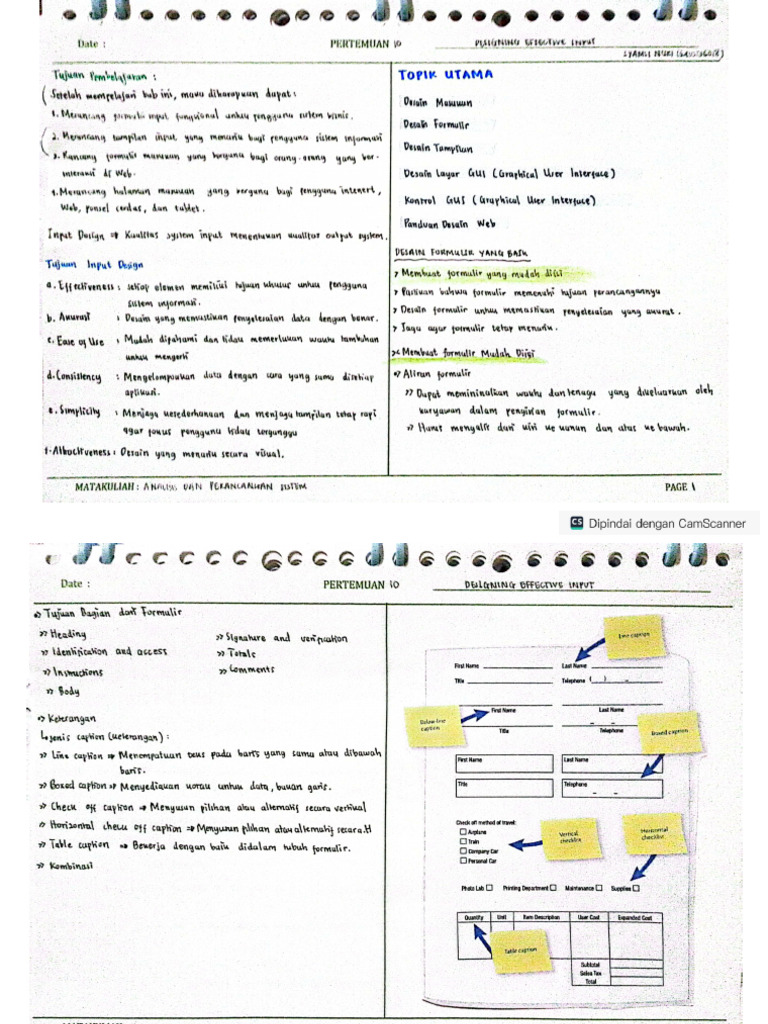 Date :
PERTEMUAN 10
DESIGNING EFFECTIVE INPUT
Tujuan Pembelajaran :
Setelah mempelajari bab ini, maka diharapkan dapat:
1. Merancang formulir input fungsional untuk pengguna sistem bisnis.
2. Merancang tampilan input yang menarik bagi pengguna sistem informasi
3. Rancang formulir masukan yang berguna bagi orang-orang yang ber-
interaksi di Web.
4. Merancang halaman masukan yang berguna bagi pengguna intenert,
Web, ponsel cerdas, dan tablet.
Input Design => Kualitas system input menentukan kualitas output system.
Tujuan Input Design
a. Effectiveness : setiap elemen memiliki tujuan khusus untuk pengguna
sistem informasi.
b. Akurasi : Desain yang memastikan penyelesaian data dengan benar.
c. Ease of Use : Mudah difahami dan tidak memerlukan waktu tambahan
untuk mengerti
d. Consistency : Mengelompokkan data dengan cara yang sama disetiap
aplikasi.
e. Simplicity : Menjaga kesederhanaan dan menjaga tampilan tetap rapi
agar fokus pengguna tidak terganggu
f. Attractiveness : Desain yang menarik secara visual.
TOPIK UTAMA
Desain Masukan
Desain Formulir
Desain Tampilan
Desain Layar GUI (Graphical User Interface)
Kontrol GUI (Graphical User Interface)
Panduan Desain Web
DESAIN FORMULIR YANG BAIK
> Membuat formulir yang mudah diisi
> Pastikan bahwa formulir memenuhi tujuan perancangannya
> Desain formulir untuk memastikan penyelesaian yang akurat.
> Jaga agar formulir tetap menarik.
Membuat Formulir Mudah Diisi
Aliran formulir
>> Dapat meminimalkan waktu dan tenaga yang dikeluarkan oleh
karyawan dalam pengisian formulir.
>> Harus mengalir dari kiri ke kanan dan atas ke bawah.
MATAKULIAH : ANALISIS DAN PERANCANGAN SISTEM
PAGE 1
CS Dipindai dengan CamScanner
Date :
PERTEMUAN 10
DESIGNING EFFECTIVE INPUT
Tujuan Bagian dari Formulir
>> Heading
>> Identification and access
>> Instructions
>> Body
>> Signature and verification
>> Totals
>> Comments
Keterangan
Jenis caption (keterangan) :
>> Line caption => Menempatkan teks pada baris yang sama atau dibawah
baris.
>> Boxed caption => Menyediakan kotak untuk data, bukan garis.
>> Check off caption => Menyusun pilihan atau alternatif secara vertikal
>> Horizontal check off caption => Menyusun pilihan atau alternatif secara.H
>> Table caption => Bekerja dengan baik didalam tubuh formulir.
>> Kombinasi
Line caption
First Name
Last Name
Title
Telephone ( ) -
Below-line
caption
First Name
Last Name
Title
Telephone
Boxed caption
First Name
Last Name
Title
Telephone
Check off method of travel:
Airplane
Train
Company Car
Personal Car
Vertical
checklist
Horizontal
checklist
Photo Lab
Printing Department
Maintenance
Supplies
Quantity
Unit
Item Description
User Cost
Expanded Cost
Subtotal
Sales Tax
Total
Table caption